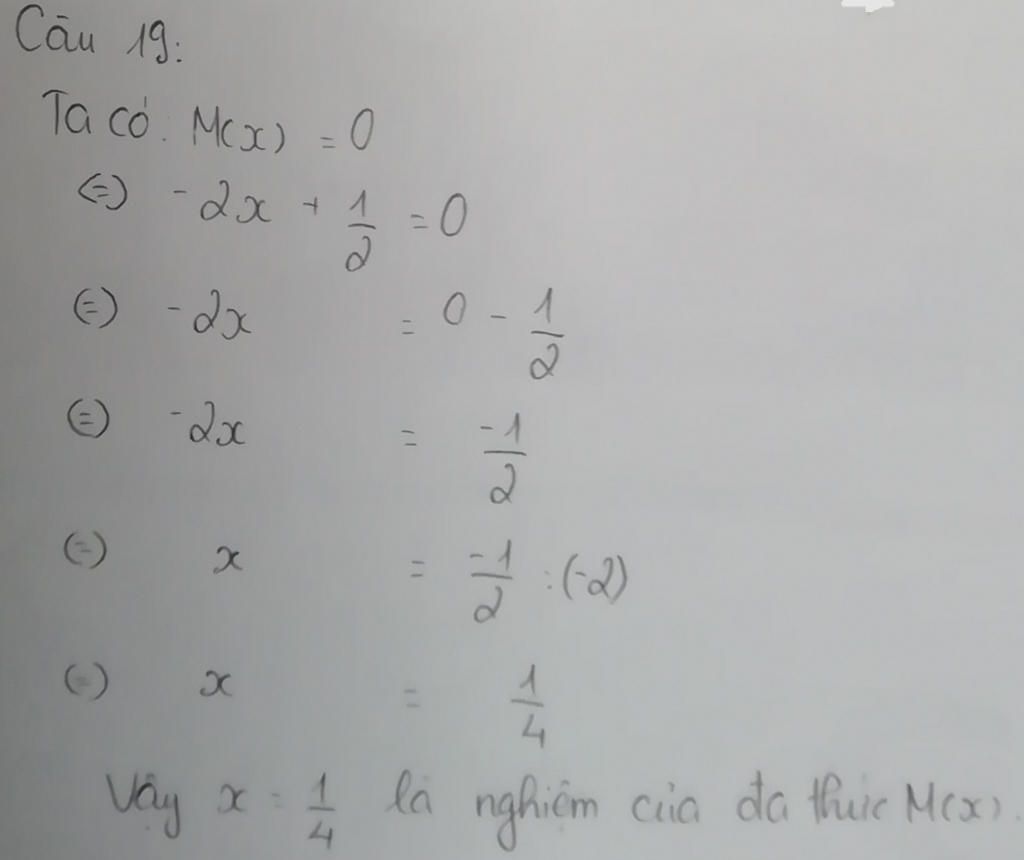 Câu 19:
Ta có: M(x) = 0
(=) -2x + 1/2 = 0
(=) -2x = 0 - 1/2
(=) -2x = -1/2
(=) x = -1/2 : (-2)
(=) x = 1/4
Vậy x = 1/4 là nghiệm của đa thức M(x).